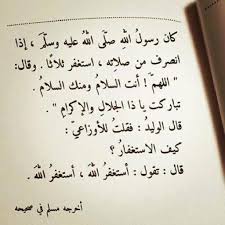 كان رسولُ اللهِ صلّى اللهُ عليه وسلّم ، إذا
انصرف من صلاته ، استغفر ثلاثًا . وقال:
" اللهمَّ ! أنت السلامُ ومنك السلامُ .
تباركتَ يا ذا الجلالِ والإكرامِ " .
قال الوليدُ : فقلتُ للأوزاعيِّ :
كيف الاستغفارُ ؟
قال : تقول : أستغفرُ اللهَ ، أستغفرُ اللهَ .
أخرجه مسلم في صحيحه